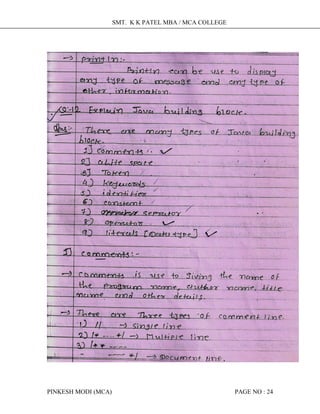 SMT. K K PATEL MBA / MCA COLLEGE
→ println :-
println can be use to display
any type of message and any type of
other, information.
Q:-12 Explain Java building block.
Ans: There are many types of Java building
block.
1] comments :-
2] white space.
3] Token
4.) keywords
5) identifier
6) constant
7) seprator
8) operator
9) literals [Data type]
1] comments:-
→ comments is use to giving the name of
the program name, author name, title
name and other details.
→ There are Three types of comment line.
1) // → single line
2) /* ---- */ → Multiple line
3) /** ----
- ---- */ → Document line.
PINKESH MODI (MCA) PAGE NO : 24